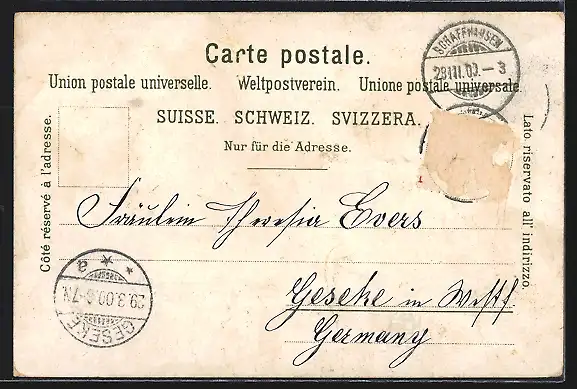 Carte postale.
Union postale universelle. Weltpostverein. Unione postale universale.
SUISSE. SCHWEIZ. SVIZZERA.
Nur für die Adresse.
Côté réservé à l'adresse.
Lato riservato all' indirizzo.
SCHAFFHAUSEN
Fräulein Theresia Evers
Geseke in Westf
Germany
GESEKE
a